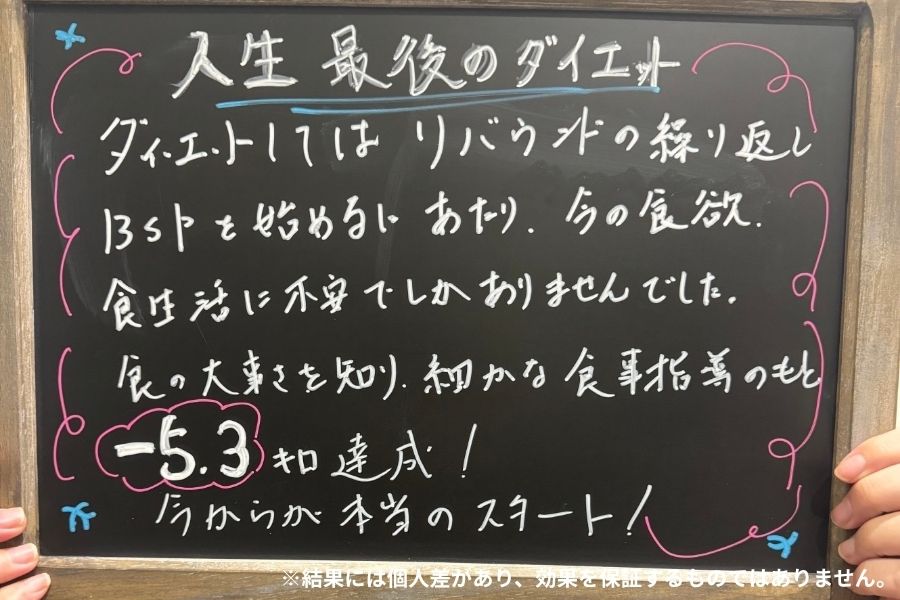 人生最後のダイエット
ダイエットしては リバウンドの繰り返し
BSPを始めるにあたり、今の食欲、
食生活に不安でしかありませんでした。
食の大事さを知り、細かな食事指導のもと
-5.3キロ達成!
今からが本当のスタート!
※結果には個人差があり、効果を保証するものではありません。